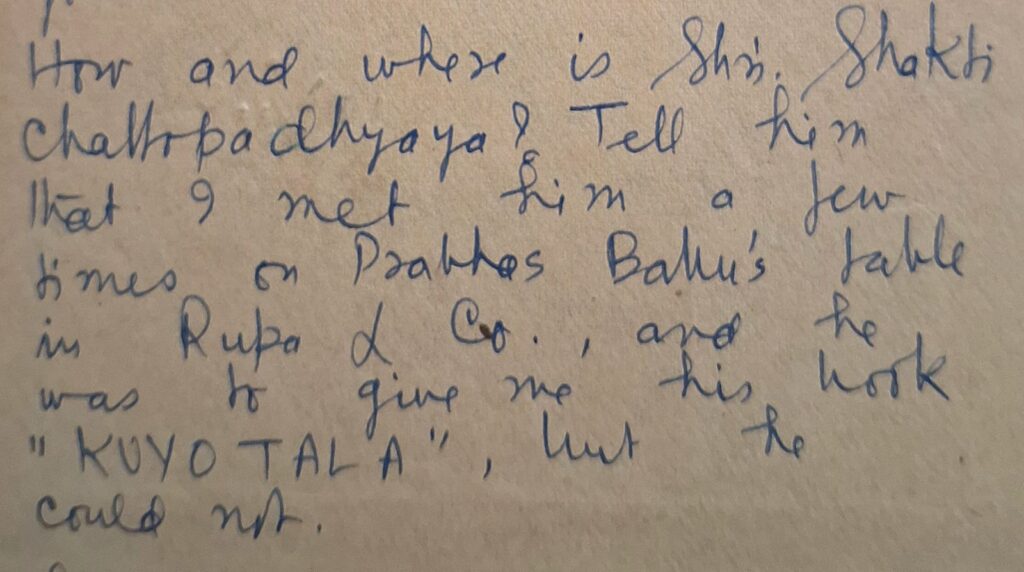 How and where is Shri. Shakti
Chattopadhyaya? Tell him
that I met him a few
times on Prabhas Babu's table
in Rupa & Co., and he
was to give me his book
"KUYO TALA", but he
could not.